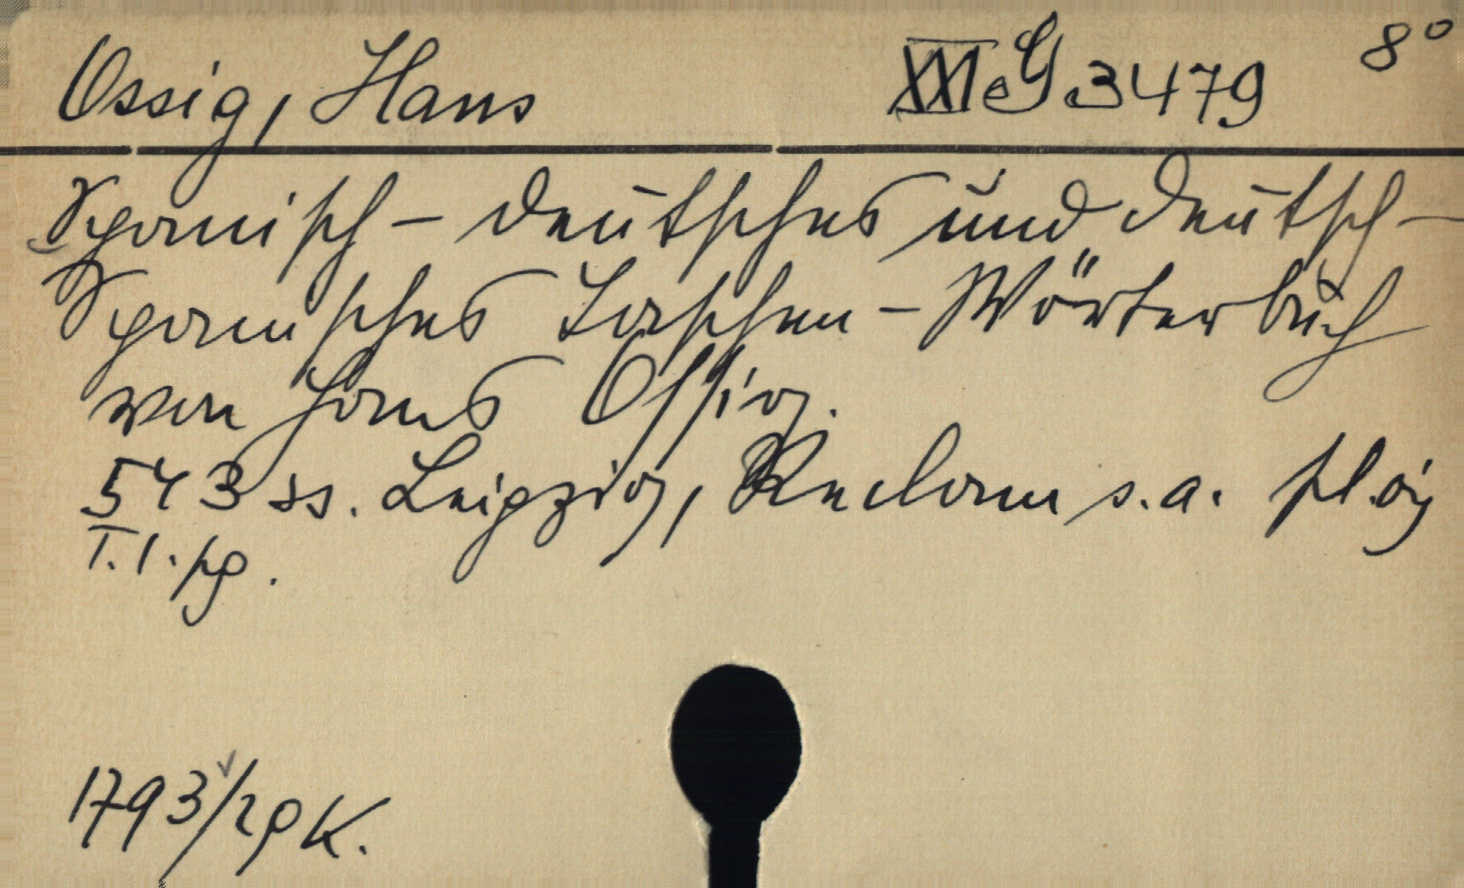 Ossig, Hans XXI e G 3479 8°
Spanisch-deutsches und deutsch-
spanisches Taschen-Wörterbuch
von Hans Ossig.
543 ss. Leipzig, Reclam s.a.
T.1.
1793/29 K.